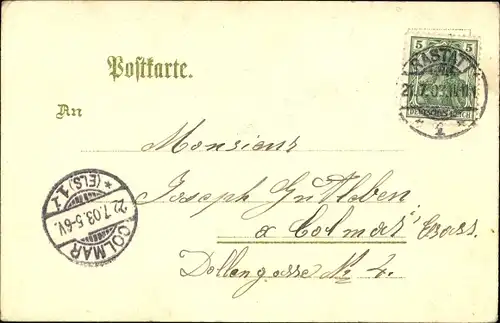 Postkarte.
5 5
RASTATT
21.7.03.
DEUTSCHES REICH
An
Monsieur
Joseph Gutleben
a Colmar, Elsass.
Dollengasse No 4.
COLMAR
22.7.03.5-6V.
* (ELS) 1.